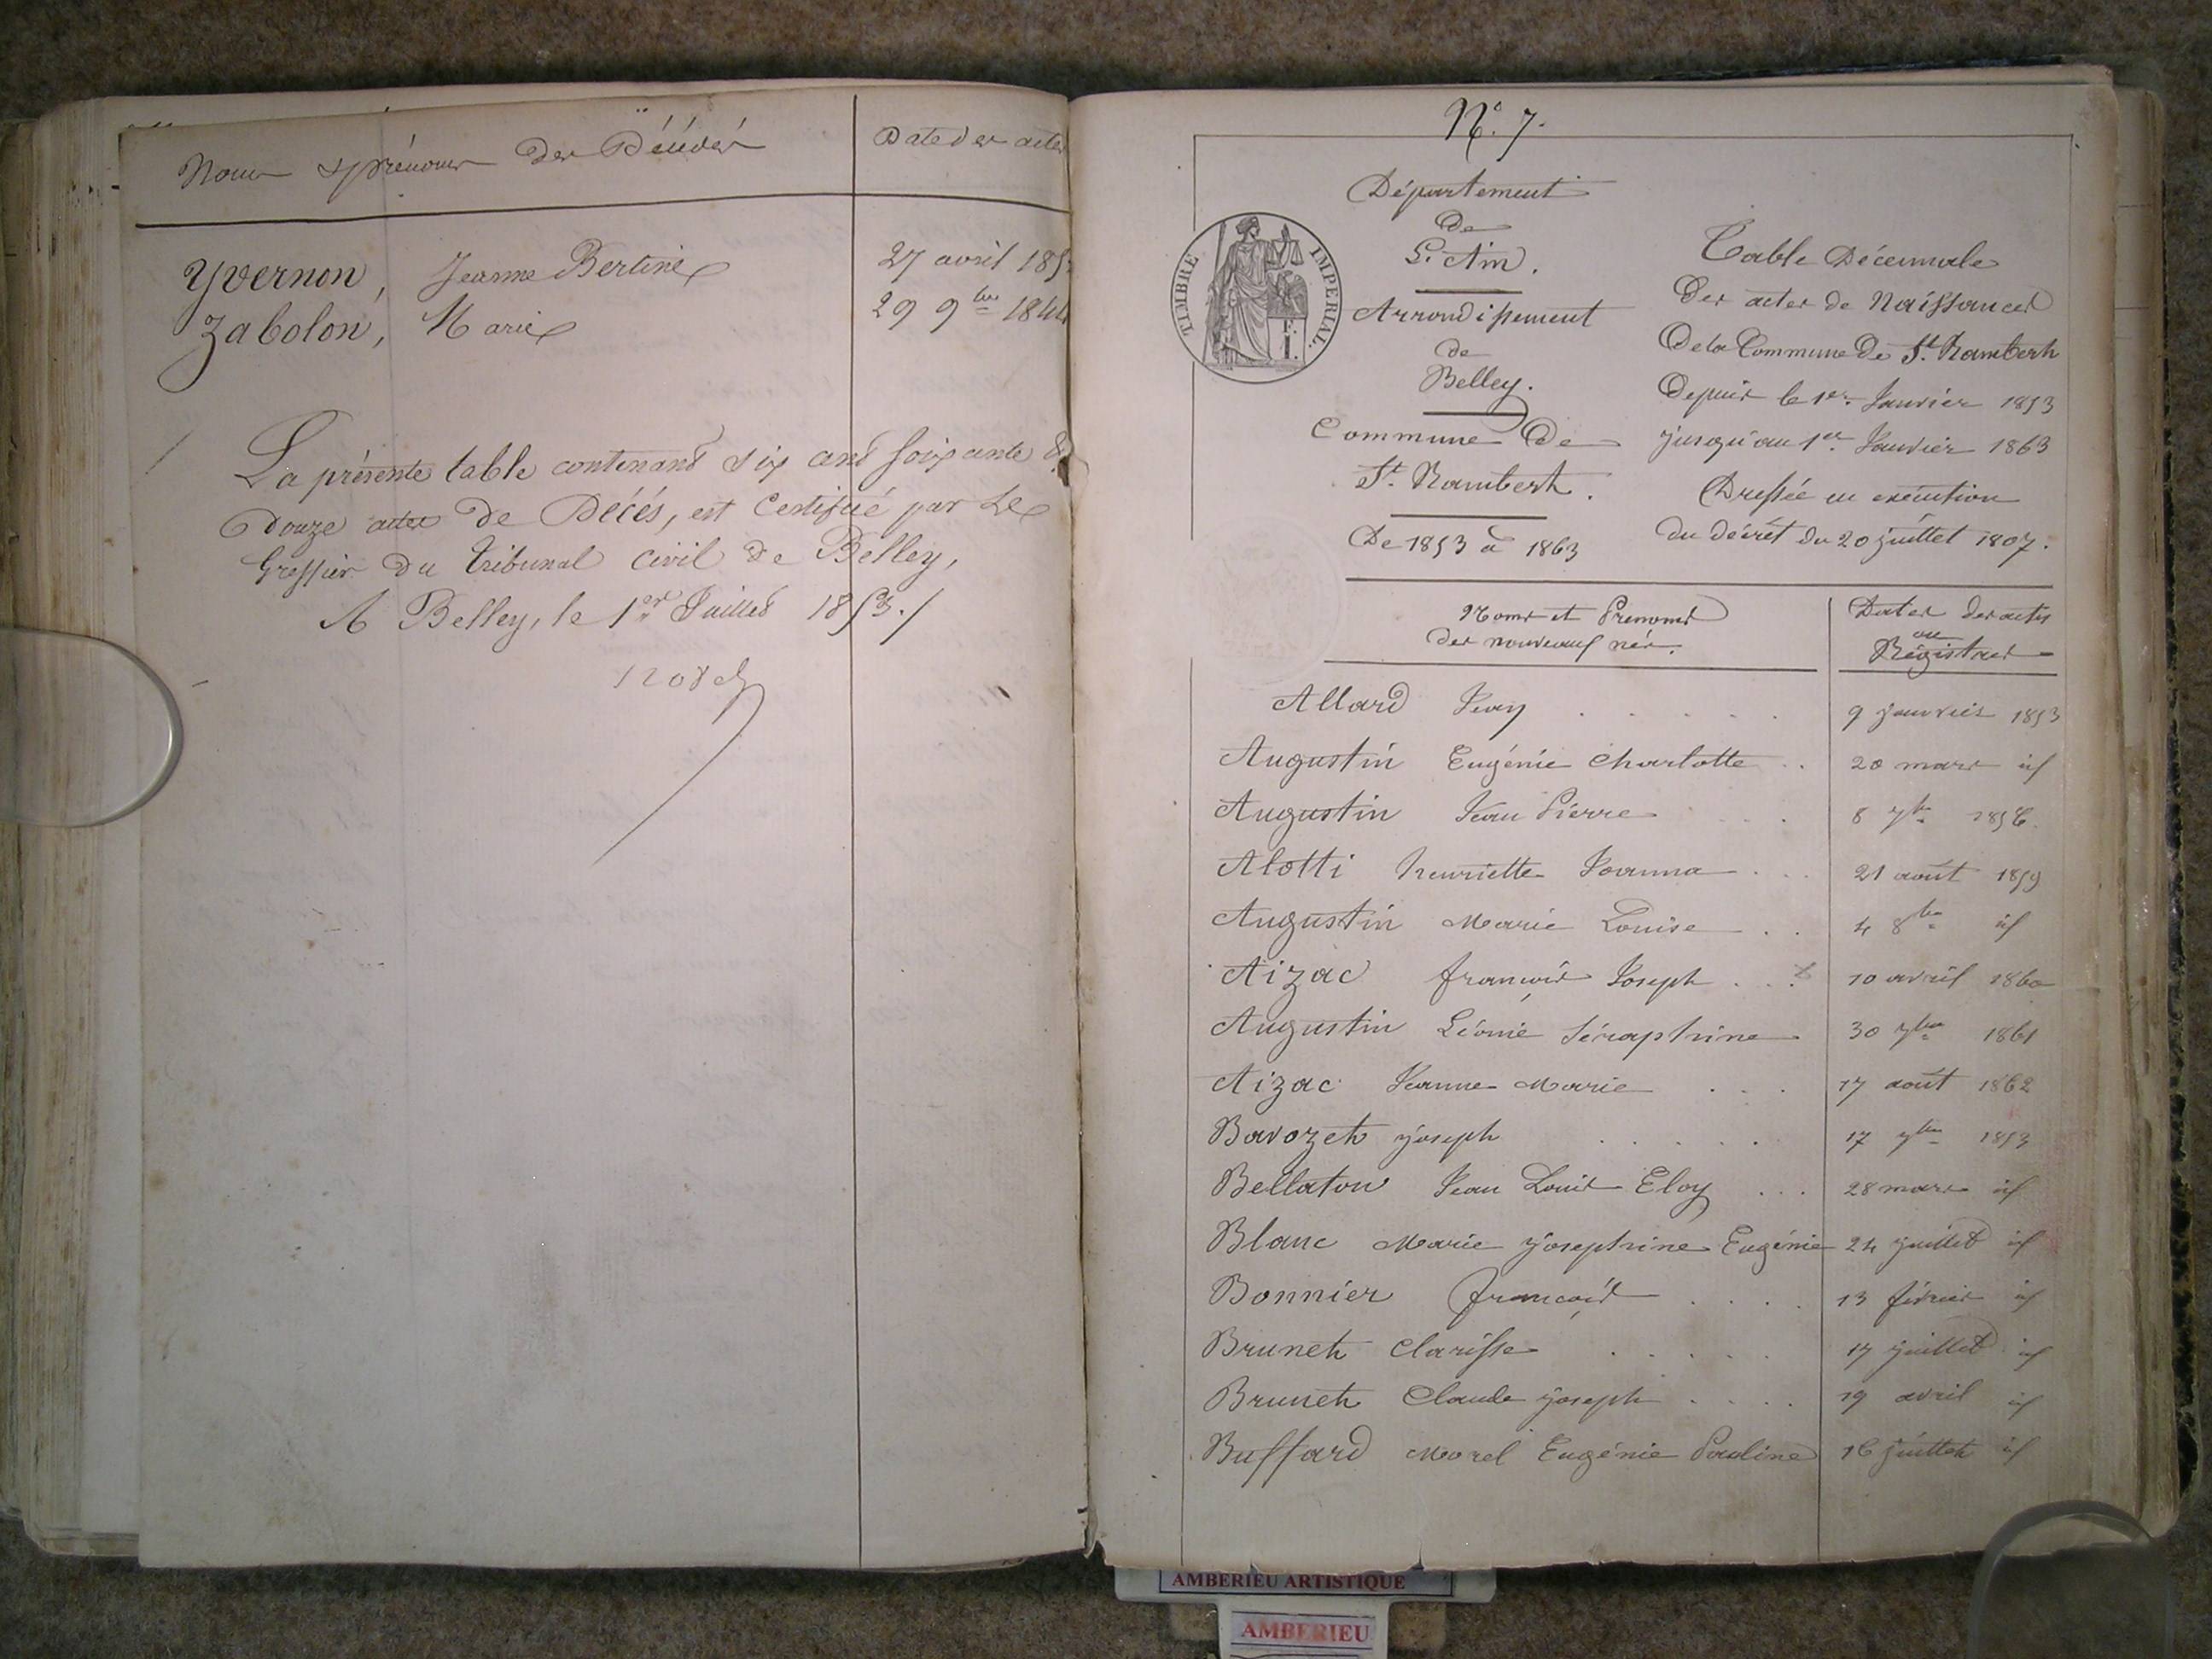 Noms & prénoms des Décédés
Date des actes
Yvernon, Jeanne Bertine
27 avril 185
Zabolon, Marie
29 9bre 1844
La présente table contenant six cent soixante &
douze actes de Décés, est Certifié par Le
Greffier du tribunal civil de Belley,
A Belley, le 1er Juillet 1853./
N°. 7.
Département
de
L'Ain.
TIMBRE IMPERIAL.
E. I.
Arrondissement
de
Belley.
Commune De
St. Rambert.
De 1853 à 1863
Table Décennale
Des actes de Naissances
De la Commune De St. Rambert
Depuis le 1er. Janvier 1853
jusqu'au 1er. Janvier 1863
Dressée en exécution
du décrét du 20 juillet 1807.
Noms et Prenoms
des nouveaux nés.
Dates des actes
au
Régistres
Allard Jean 9 janvier 1853
Augustin Eugénie Charlotte 20 mars id
Augustin Jean Pierre 8 7bre 1856
Alotti henriette Joanna 21 août 1859
Augustin Marie Louise 4 8bre id
Aizac françois Joseph 10 avril 1860
Augustin Léonie Séraphine 30 7bre 1861
Aizac Jeanne Marie 17 août 1862
Bavozet joseph 17 7bre 1853
Bellaton Jean Louis Eloy 28 mars id
Blanc Marie joséphine Eugénie 24 juillet id
Bonnier françois 13 février id
Brunet Clarisse 17 juillet id
Brunet Claude joseph 19 avril id
Buffard Morel Eugénie Pauline 16 juillet id
AMBERIEU ARTISTIQUE
AMBERIEU